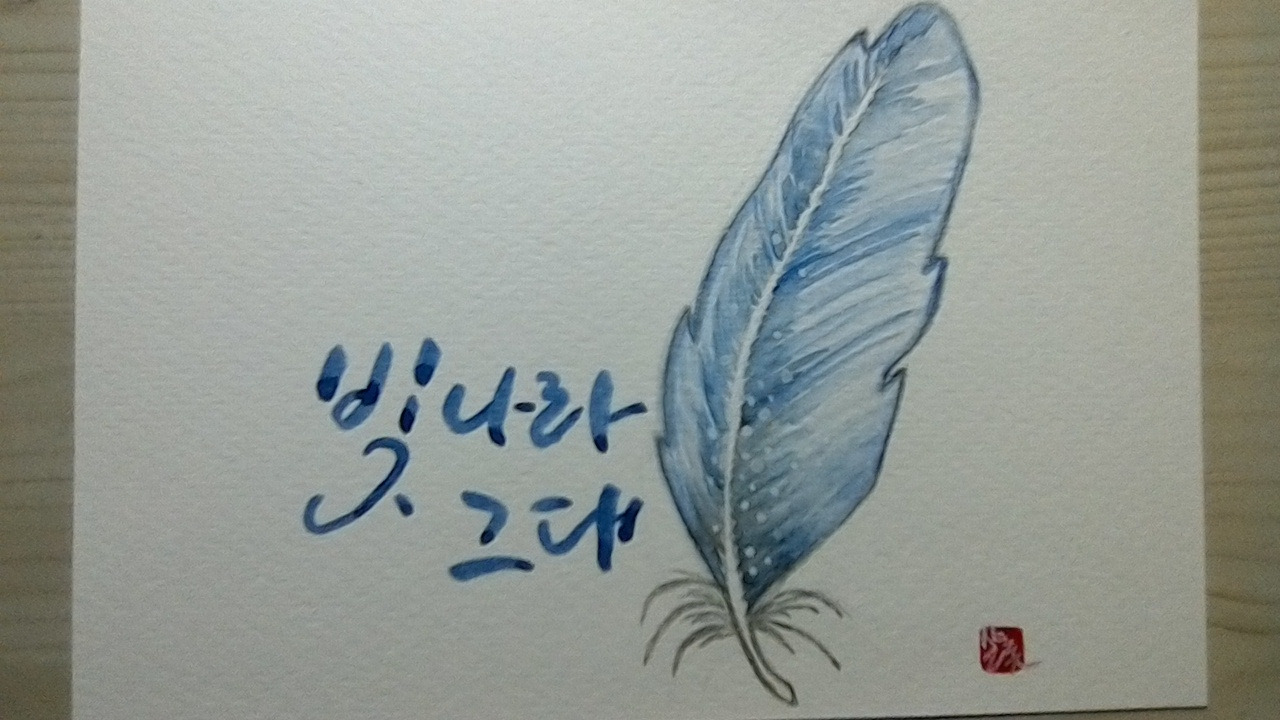 빛나라
그대